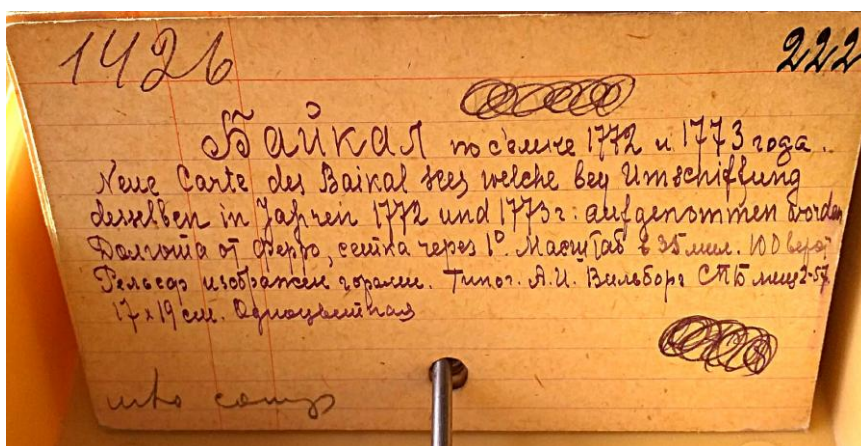 1426
222
Байкал по съемке 1772 и 1773 года.
Neue Carte des Baikal sees welche bey Umschiffung
desselben in Jahren 1772 und 1773 г: aufgenommen worden
Долгота от Ферро, сетка через 1°. Масштаб в 35 мил. 100 верст
Рельеф изображен горами. Типог. А.И. Вильборг СПБ мещ 2-57.
17 х 19 см. Одноцветная